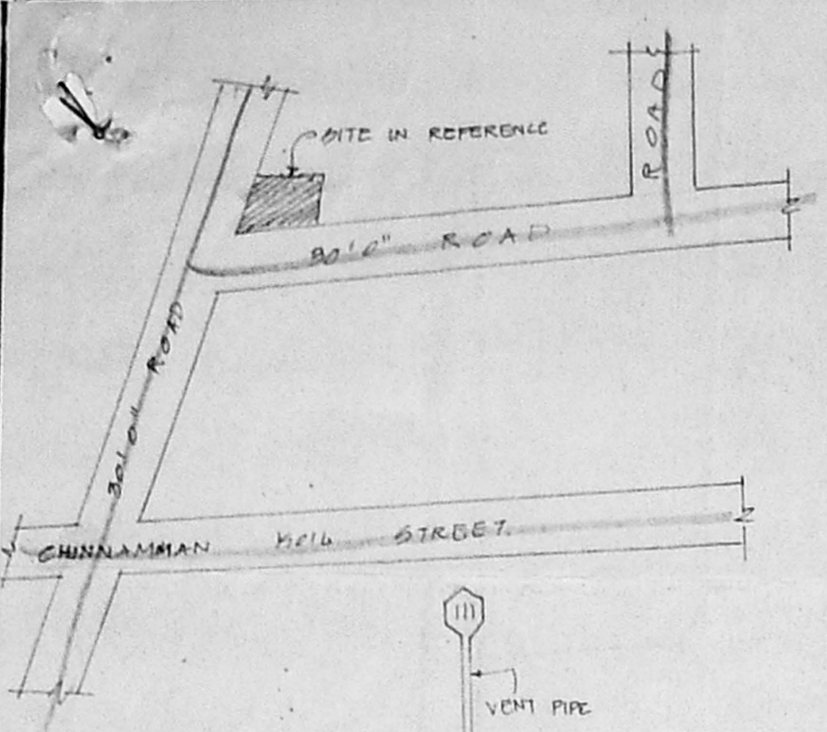 SITE IN REFERENCE
ROAD
30'0" ROAD
30'0" ROAD
CHINNAMMAN KOIL STREET
VENT PIPE